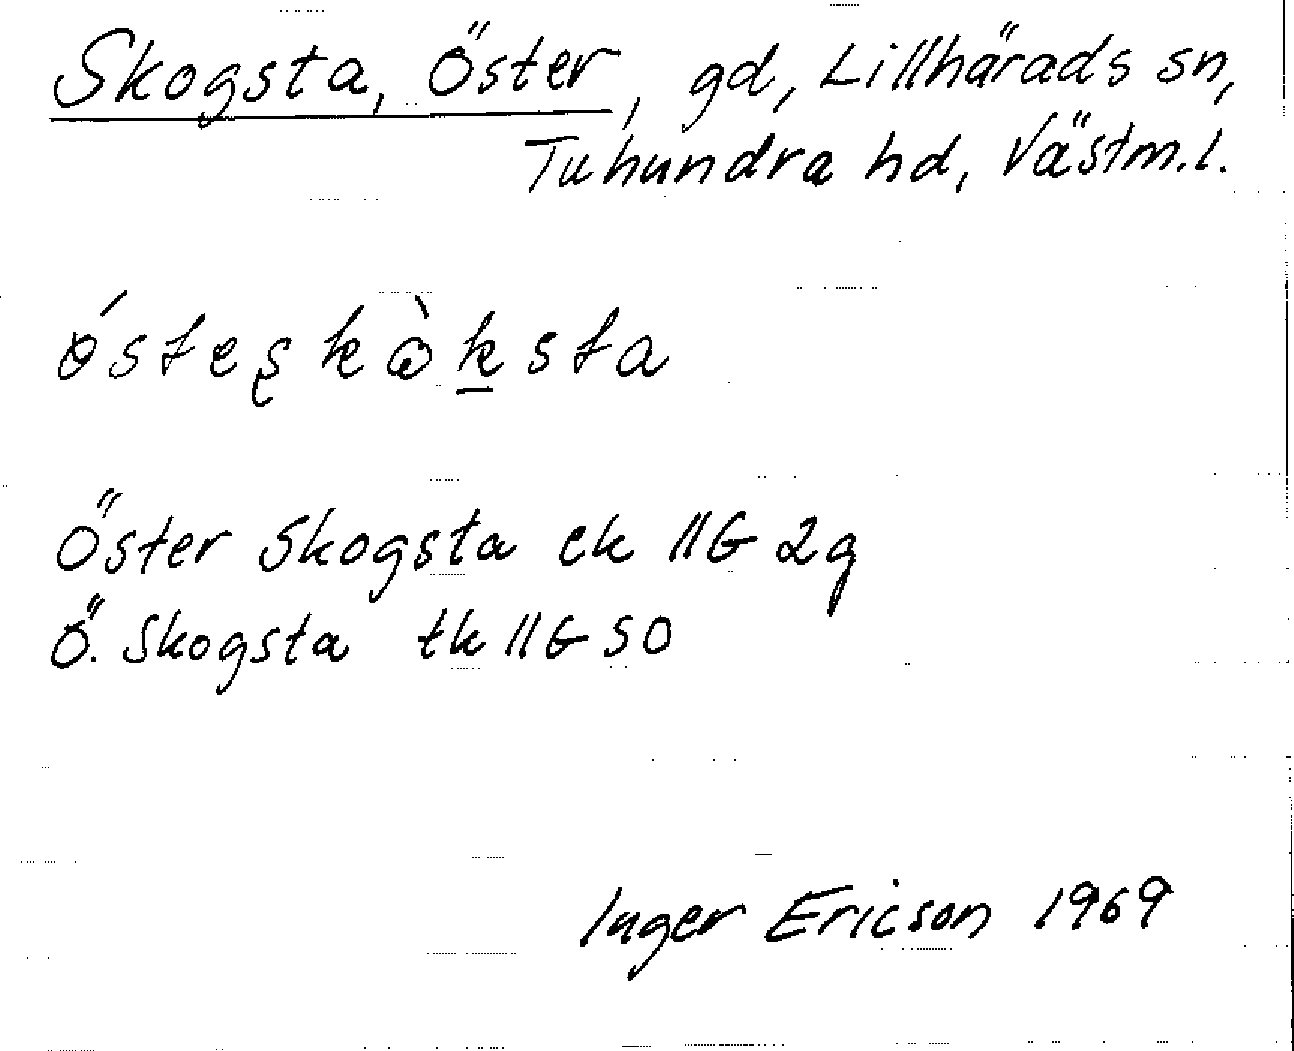 Skogsta, Öster, gd, Lillhärads sn,
Tuhundra hd, Västm.l.
Öster Skogsta ek 11G 2g
Ö. Skogsta tk 11G SO
Inger Ericson 1969